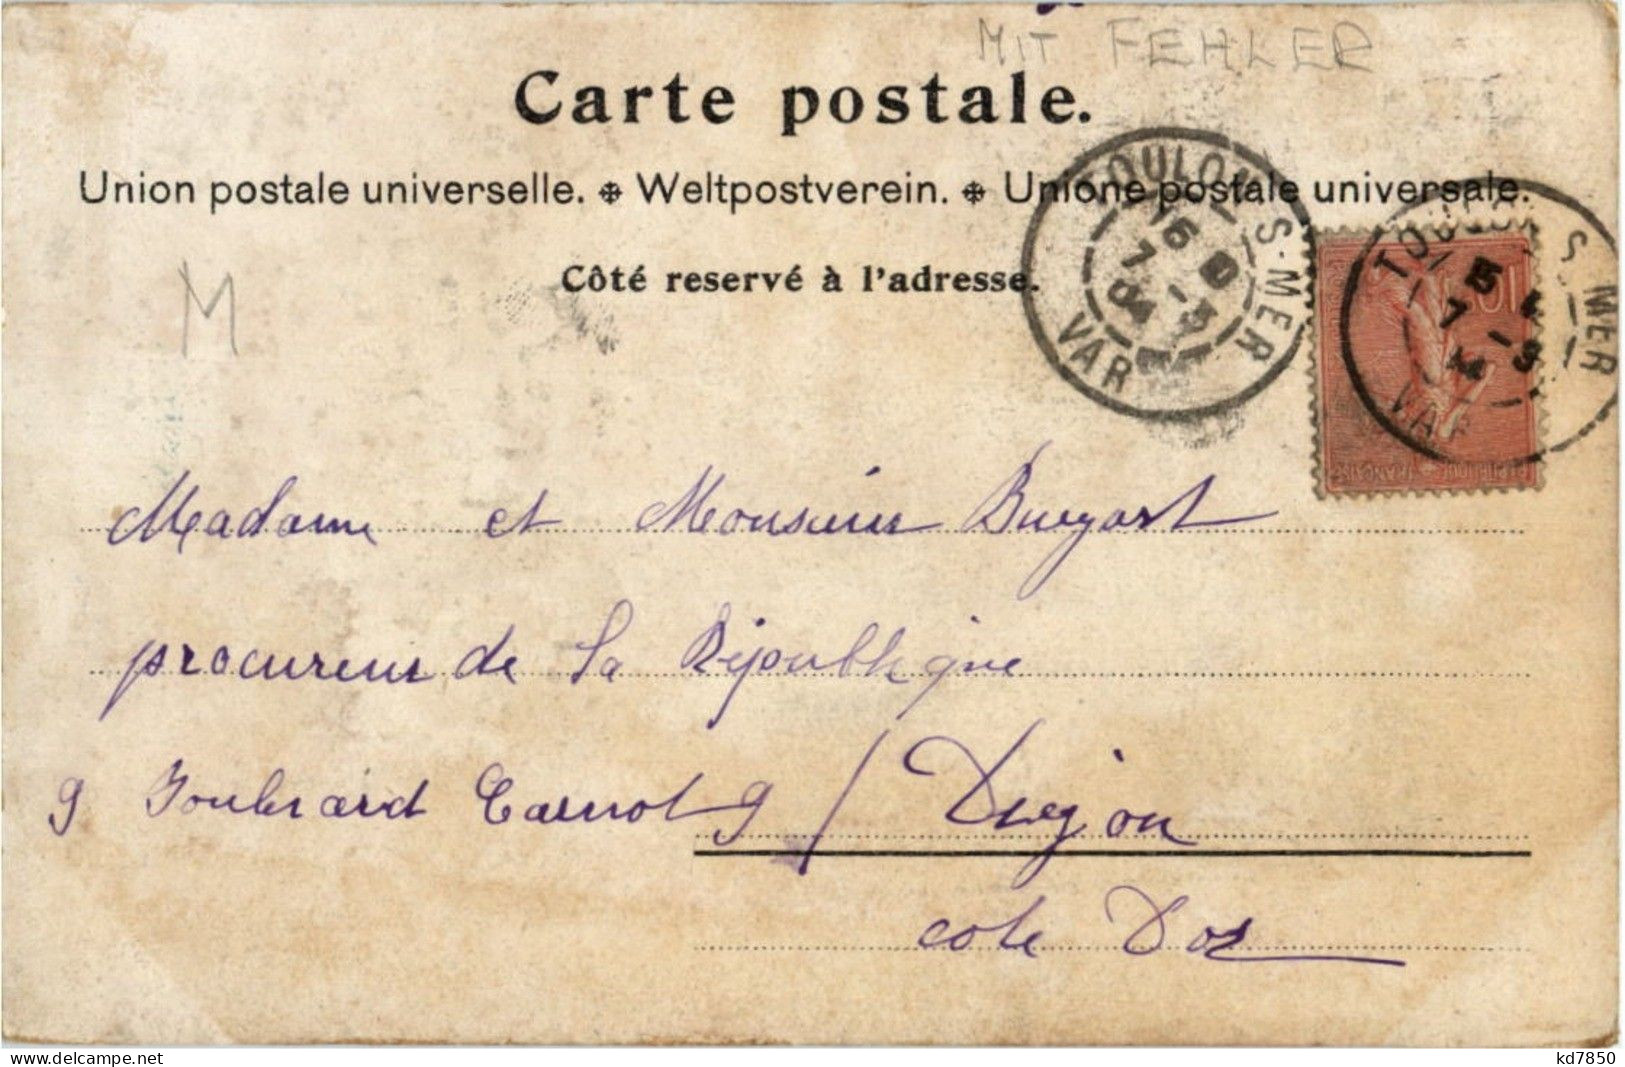 MIT FEHLER
Carte postale.
Union postale universelle. ❉ Weltpostverein. ❉ Unione postale universale.
Côté reservé à l'adresse.
M
TOULON S-MER
7 -3
04
VAR
TOULON S MER
7 -3
VAR
10
REPUBLIQUE FRANÇAISE
Madame et Monsieur
procureur de la République
9 Boulevard Carnot 9 / Diejon
cote Dor
www.delcampe.net
kd7850